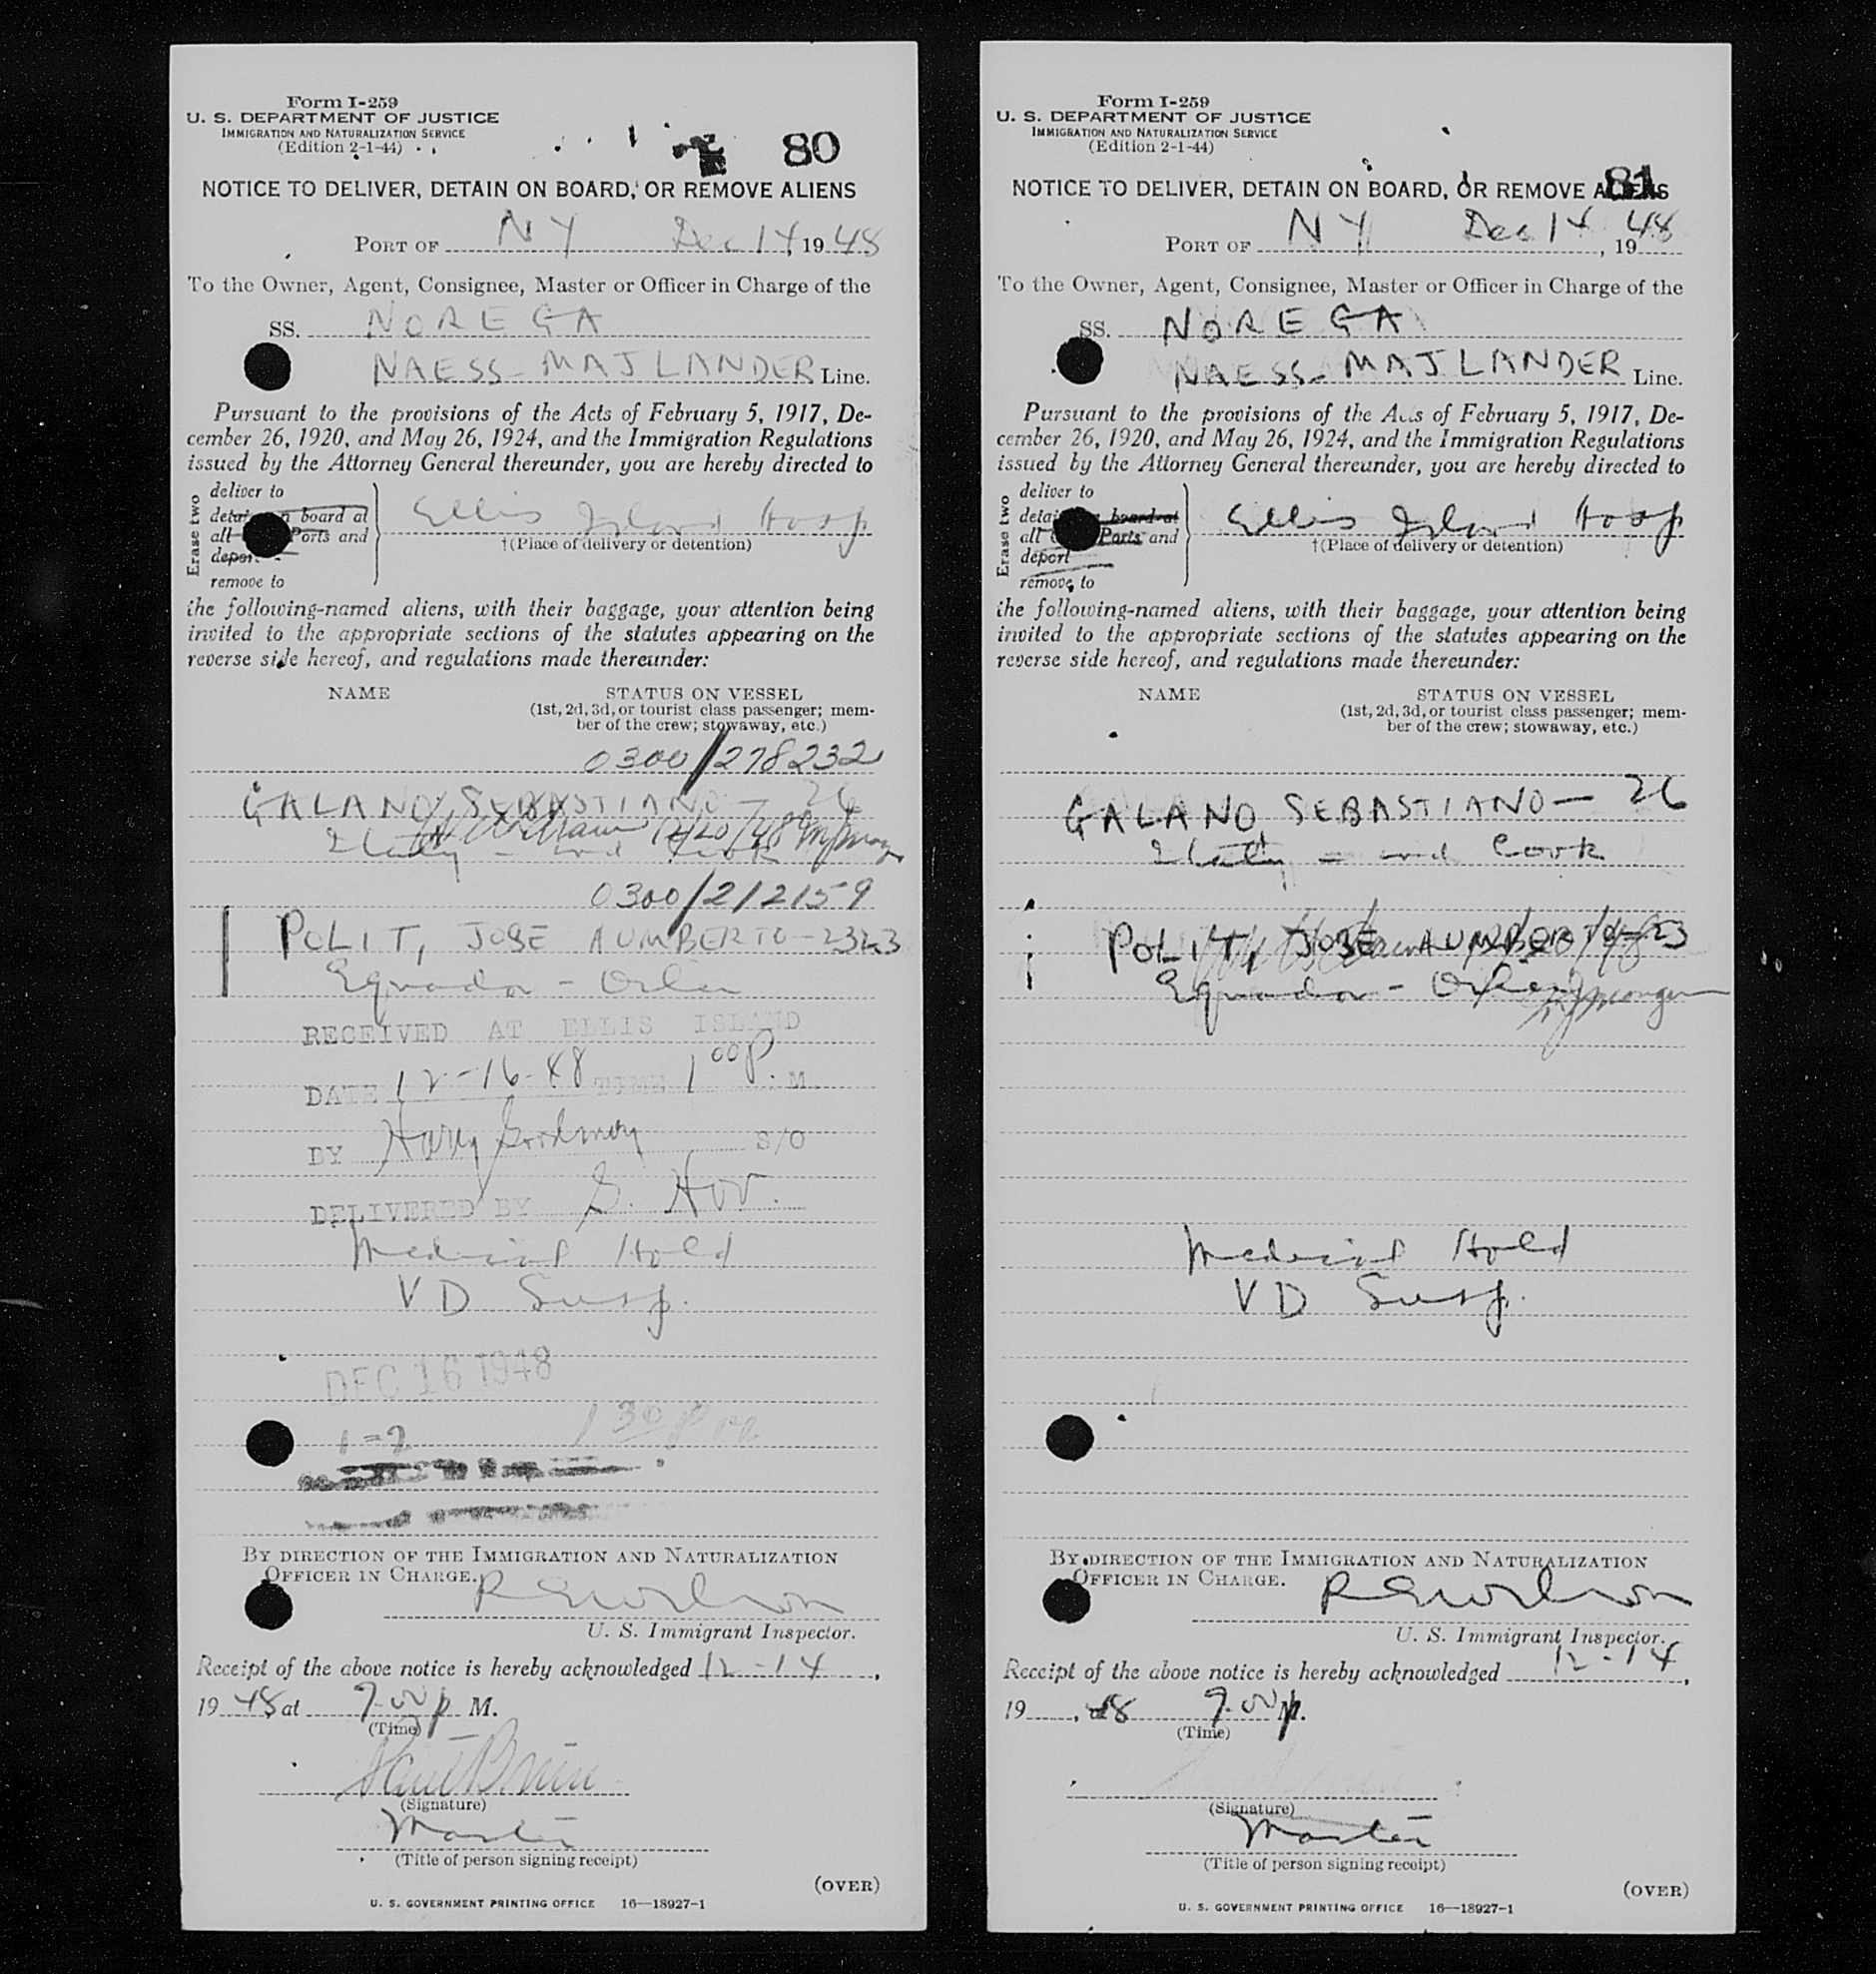 Form I-259
U. S. DEPARTMENT OF JUSTICE
IMMIGRATION AND NATURALIZATION SERVICE
(Edition 2-1-44)
80
NOTICE TO DELIVER, DETAIN ON BOARD, OR REMOVE ALIENS
PORT OF NY Dec 14, 1948
To the Owner, Agent, Consignee, Master or Officer in Charge of the
SS. NOREGA
NAESS-MAJLANDER Line.
Pursuant to the provisions of the Acts of February 5, 1917, De-
cember 26, 1920, and May 26, 1924, and the Immigration Regulations
issued by the Attorney General thereunder, you are hereby directed to
Erase two
deliver to
detain on board at
all Ports and
deport
remove to
Ellis Island Hosp
†(Place of delivery or detention)
the following-named aliens, with their baggage, your attention being
invited to the appropriate sections of the statutes appearing on the
reverse side hereof, and regulations made thereunder:
NAME STATUS ON VESSEL
(1st, 2d, 3d, or tourist class passenger; mem-
ber of the crew; stowaway, etc.)
0300/278232
GALANO, SEBASTIANO - 26
12/20/48
Italy - 2nd Cook
0300/212159
POLIT, JOSE HUMBERTO - 23
Equador - Oiler
RECEIVED AT ELLIS ISLAND
DATE 12-16-48 TIME 1 00 P. M.
BY Harry Goodman S/O
DELIVERED BY S. Hov.
Medical Hold
VD Susp.
DEC 16 1948
1-2 1 30 P M
BY DIRECTION OF THE IMMIGRATION AND NATURALIZATION
OFFICER IN CHARGE.
U. S. Immigrant Inspector.
Receipt of the above notice is hereby acknowledged 12-14,
1948 at 9.00 p M.
(Time)
(Signature)
Master
(Title of person signing receipt)
(OVER)
U. S. GOVERNMENT PRINTING OFFICE 16—18927-1
Form I-259
U. S. DEPARTMENT OF JUSTICE
IMMIGRATION AND NATURALIZATION SERVICE
(Edition 2-1-44)
81
NOTICE TO DELIVER, DETAIN ON BOARD, OR REMOVE ALIENS
PORT OF NY Dec 14, 1948
To the Owner, Agent, Consignee, Master or Officer in Charge of the
SS. NOREGA
NAESS-MAJLANDER Line.
Pursuant to the provisions of the Acts of February 5, 1917, De-
cember 26, 1920, and May 26, 1924, and the Immigration Regulations
issued by the Attorney General thereunder, you are hereby directed to
Erase two
deliver to
detain board at
all Ports and
deport
remove to
Ellis Island Hosp
†(Place of delivery or detention)
the following-named aliens, with their baggage, your attention being
invited to the appropriate sections of the statutes appearing on the
reverse side hereof, and regulations made thereunder:
NAME STATUS ON VESSEL
(1st, 2d, 3d, or tourist class passenger; mem-
ber of the crew; stowaway, etc.)
GALANO SEBASTIANO - 26
Italy - 2nd Cook
POLIT, JOSE HUMBERTO - 23
Equador - Oiler
Medical Hold
VD Susp.
BY DIRECTION OF THE IMMIGRATION AND NATURALIZATION
OFFICER IN CHARGE.
U. S. Immigrant Inspector.
Receipt of the above notice is hereby acknowledged 12-14,
19 , 48 9.00 p M.
(Time)
(Signature)
Master
(Title of person signing receipt)
(OVER)
U. S. GOVERNMENT PRINTING OFFICE 16—18927-1